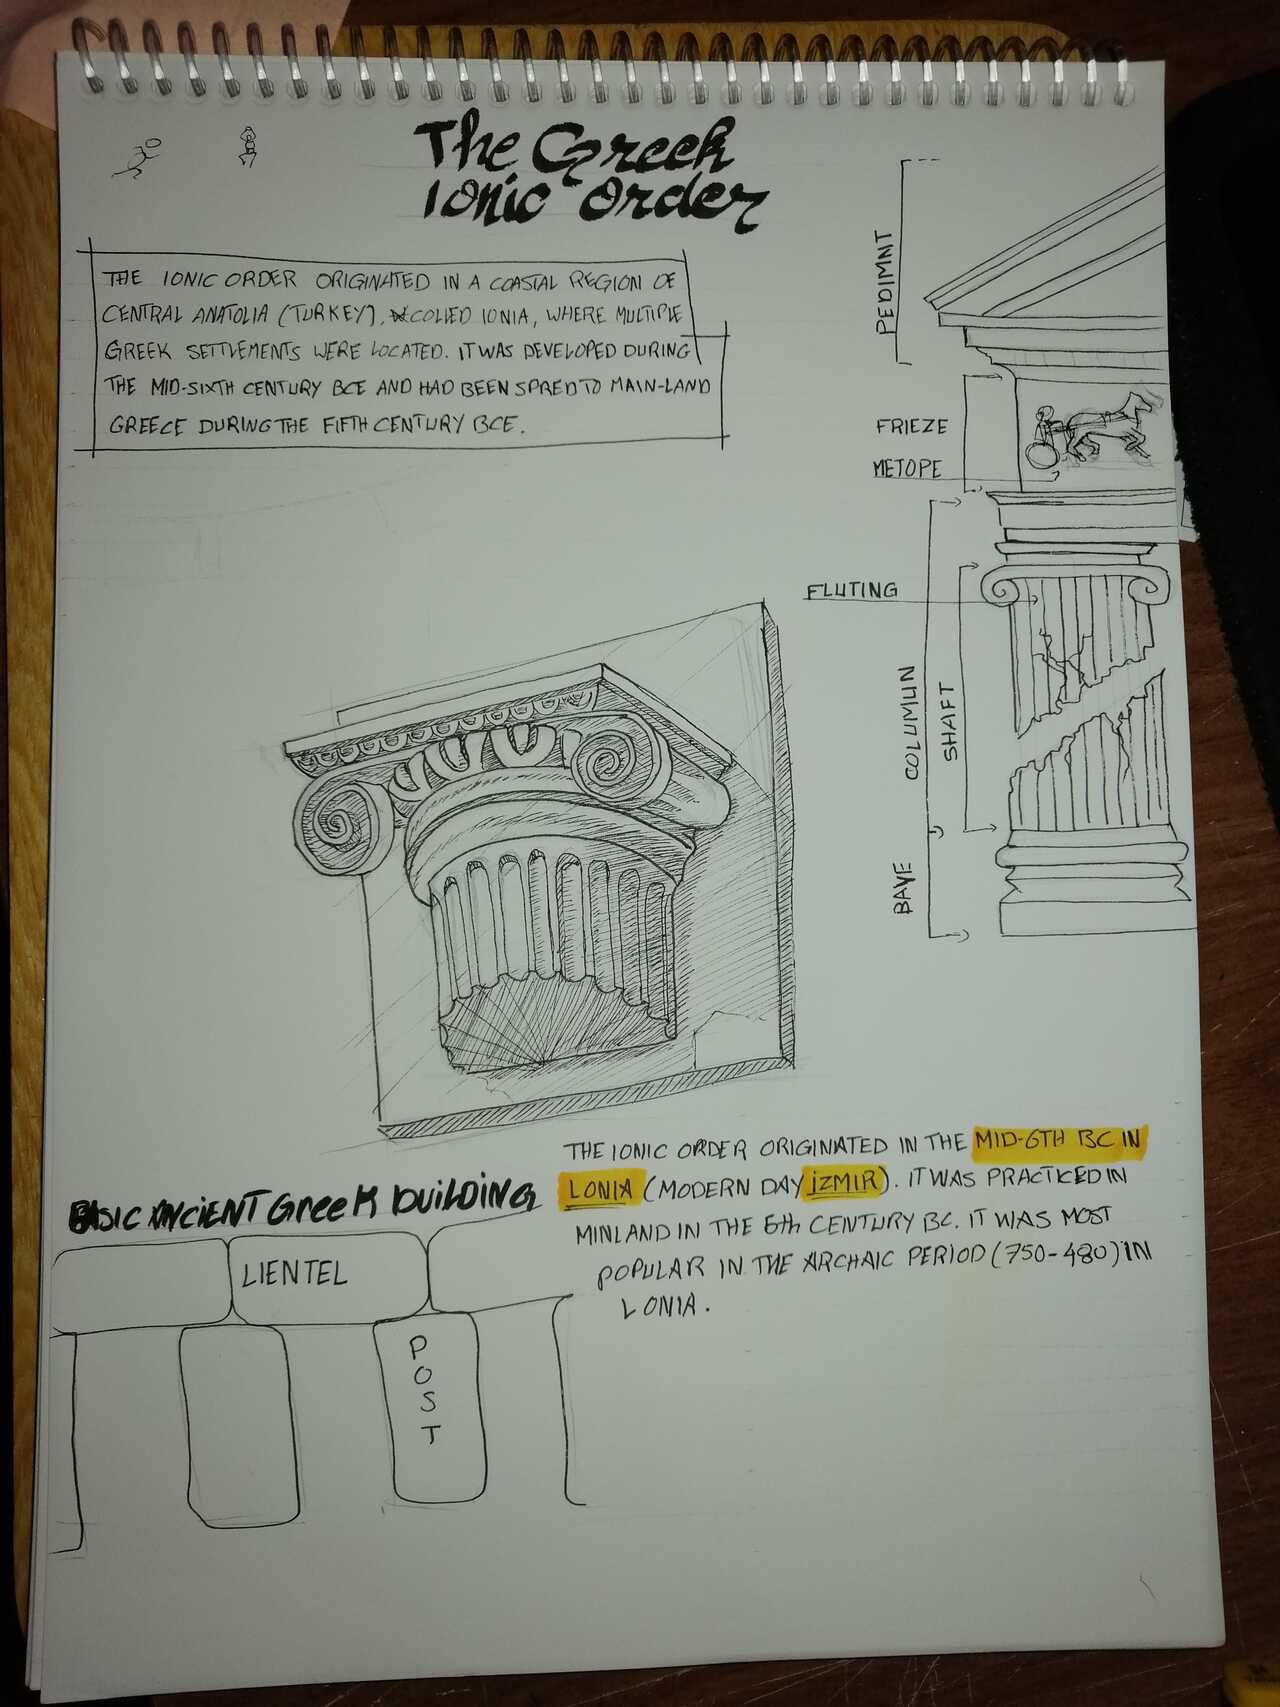 The Greek
Ionic Order
THE IONIC ORDER ORIGINATED IN A COASTAL REGION OF
CENTRAL ANATOLIA (TURKEY), COLLED IONIA, WHERE MULTIPLE
GREEK SETTLEMENTS WERE LOCATED. IT WAS DEVELOPED DURING
THE MID-SIXTH CENTURY BCE AND HAD BEEN SPRED TO MAIN-LAND
GREECE DURING THE FIFTH CENTURY BCE.
PEDIMNT
FRIEZE
METOPE
FLUTING
COLUMUN
SHAFT
BAVE
THE IONIC ORDER ORIGINATED IN THE MID-6TH BC IN
LONIA (MODERN DAY İZMIR). IT WAS PRACTICED IN
MINLAND IN THE 6th CENTURY BC. IT WAS MOST
POPULAR IN THE ARCHAIC PERIOD (750-480) IN
LONIA.
BASIC ANCIENT Greek building
LIENTEL
POST